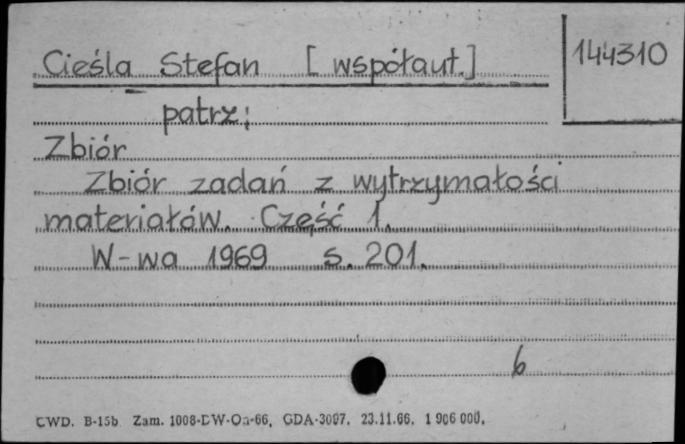 Cieśla Stefan [współaut.]
144310
patrz:
Zbiór
Zbiór zadań z wytrzymałości
materiałów. Część 1.
W-wa 1969 s. 201.
6
CWD. B-15b Zam. 1008-DW-Oa-66, GDA-3097. 23.11.66. 1 906 000.